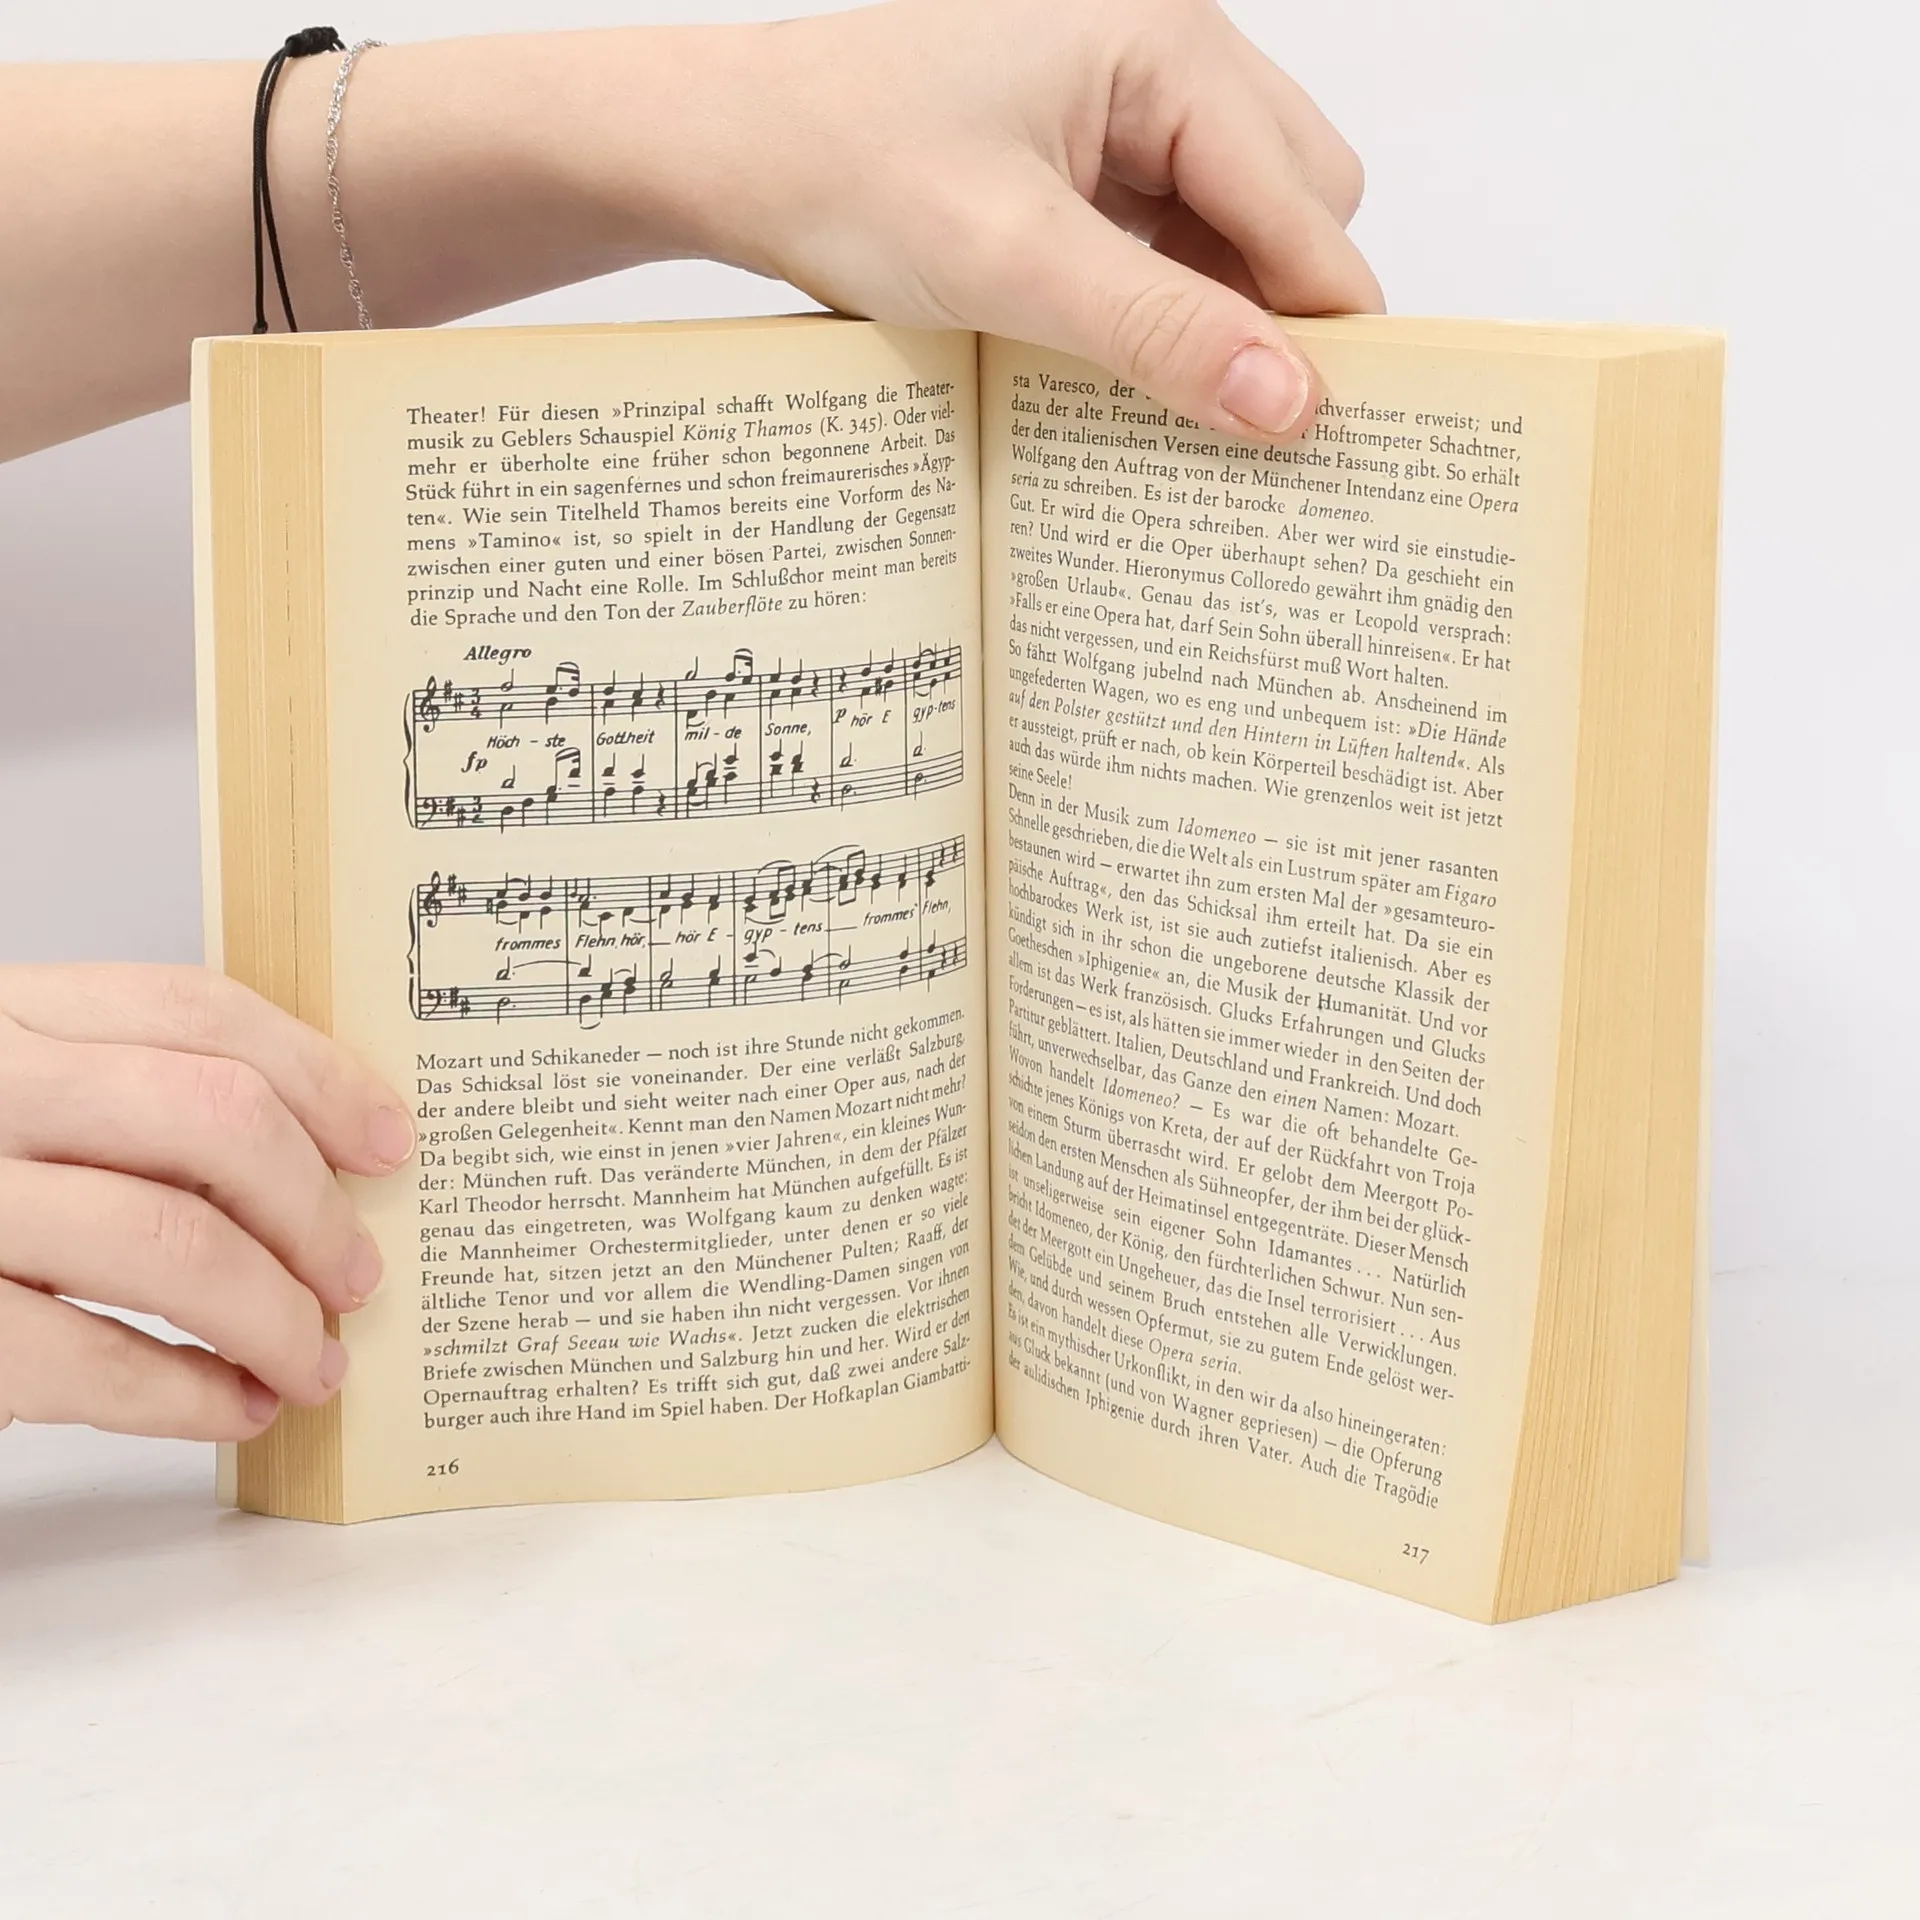 Theater! Für diesen »Prinzipal schafft Wolfgang die Theater-
musik zu Geblers Schauspiel König Thamos (K. 345). Oder viel-
mehr er überholte eine früher schon begonnene Arbeit. Das
Stück führt in ein sagenfernes und schon freimaurerisches »Ägyp-
ten«. Wie sein Titelheld Thamos bereits eine Vorform des Na-
mens »Tamino« ist, so spielt in der Handlung der Gegensatz
zwischen einer guten und einer bösen Partei, zwischen Sonnen-
prinzip und Nacht eine Rolle. Im Schlußchor meint man bereits
die Sprache und den Ton der Zauberflöte zu hören:
Allegro
Höch - ste Gottheit mil - de Sonne, p hör E gyp-tens
fp
frommes Flehn, hör, hör E - gyp - tens frommes Flehn,
Mozart und Schikaneder — noch ist ihre Stunde nicht gekommen.
Das Schicksal löst sie voneinander. Der eine verläßt Salzburg,
der andere bleibt und sieht weiter nach einer Oper aus, nach der
»großen Gelegenheit«. Kennt man den Namen Mozart nicht mehr?
Da begibt sich, wie einst in jenen »vier Jahren«, ein kleines Wun-
der: München ruft. Das veränderte München, in dem der Pfälzer
Karl Theodor herrscht. Mannheim hat München aufgefüllt. Es ist
genau das eingetreten, was Wolfgang kaum zu denken wagte:
die Mannheimer Orchestermitglieder, unter denen er so viele
Freunde hat, sitzen jetzt an den Münchener Pulten; Raaff, der
ältliche Tenor und vor allem die Wendling-Damen singen von
der Szene herab — und sie haben ihn nicht vergessen. Vor ihnen
»schmilzt Graf Seeau wie Wachs«. Jetzt zucken die elektrischen
Briefe zwischen München und Salzburg hin und her. Wird er den
Opernauftrag erhalten? Es trifft sich gut, daß zwei andere Salz-
burger auch ihre Hand im Spiel haben. Der Hofkaplan Giambatti-
216
sta Varesco, der chverfasser erweist; und
dazu der alte Freund der Hoftrompeter Schachtner,
der den italienischen Versen eine deutsche Fassung gibt. So erhält
Wolfgang den Auftrag von der Münchener Intendanz eine Opera
seria zu schreiben. Es ist der barocke domeneo.
Gut. Er wird die Opera schreiben. Aber wer wird sie einstudie-
ren? Und wird er die Oper überhaupt sehen? Da geschieht ein
zweites Wunder. Hieronymus Colloredo gewährt ihm gnädig den
»großen Urlaub«. Genau das ist's, was er Leopold versprach:
»Falls er eine Opera hat, darf Sein Sohn überall hinreisen«. Er hat
das nicht vergessen, und ein Reichsfürst muß Wort halten.
So fährt Wolfgang jubelnd nach München ab. Anscheinend im
ungefederten Wagen, wo es eng und unbequem ist: »Die Hände
auf den Polster gestützt und den Hintern in Lüften haltend«. Als
er aussteigt, prüft er nach, ob kein Körperteil beschädigt ist. Aber
auch das würde ihm nichts machen. Wie grenzenlos weit ist jetzt
seine Seele!
Denn in der Musik zum Idomeneo — sie ist mit jener rasanten
Schnelle geschrieben, die die Welt als ein Lustrum später am Figaro
bestaunen wird — erwartet ihn zum ersten Mal der »gesamteuro-
päische Auftrag«, den das Schicksal ihm erteilt hat. Da sie ein
hochbarockes Werk ist, ist sie auch zutiefst italienisch. Aber es
kündigt sich in ihr schon die ungeborene deutsche Klassik der
Goetheschen »Iphigenie« an, die Musik der Humanität. Und vor
allem ist das Werk französisch. Glucks Erfahrungen und Glucks
Forderungen — es ist, als hätten sie immer wieder in den Seiten der
Partitur geblättert. Italien, Deutschland und Frankreich. Und doch
führt, unverwechselbar, das Ganze den einen Namen: Mozart.
Wovon handelt Idomeneo? — Es war die oft behandelte Ge-
schichte jenes Königs von Kreta, der auf der Rückfahrt von Troja
von einem Sturm überrascht wird. Er gelobt dem Meergott Po-
seidon den ersten Menschen als Sühneopfer, der ihm bei der glück-
lichen Landung auf der Heimatinsel entgegenträte. Dieser Mensch
ist unseligerweise sein eigener Sohn Idamantes . . . Natürlich
bricht Idomeneo, der König, den fürchterlichen Schwur. Nun sen-
det der Meergott ein Ungeheuer, das die Insel terrorisiert . . . Aus
dem Gelübde und seinem Bruch entstehen alle Verwicklungen.
Wie, und durch wessen Opfermut, sie zu gutem Ende gelöst wer-
den, davon handelt diese Opera seria.
Es ist ein mythischer Urkonflikt, in den wir da also hineingeraten:
aus Gluck bekannt (und von Wagner gepriesen) — die Opferung
der aulidischen Iphigenie durch ihren Vater. Auch die Tragödie
217